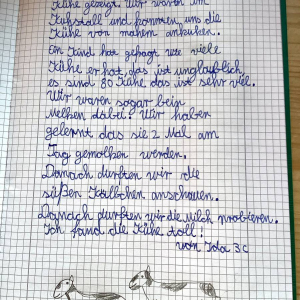 Kühe gezeigt. Wir waren im
Kuhstall und konnten uns die
Kühe von nahem ankuken.
Ein Kind hat gefragt wie viele
Kühe er hat, das ist unglaublich
es sind 80 Kühe das ist sehr viel.
Wir waren sogar bein
Melken dabei! Wir haben
gelernt das sie 2 Mal am
Tag gemolken werden.
Danach durften wir die
süßen Kälbchen anschauen.
Danach durften wir die Milch probieren.
Ich fand die Kühe toll!
von 3c